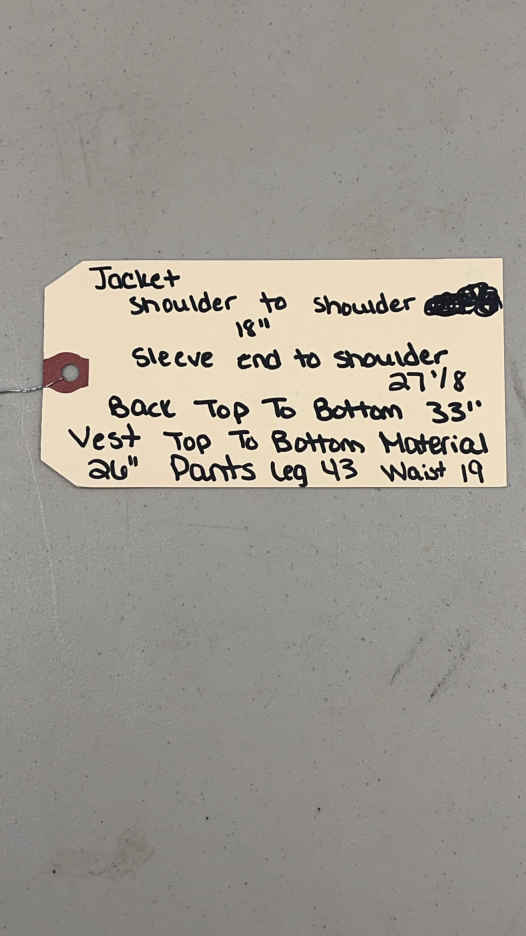 Jacket
Shoulder to Shoulder
18"
Sleeve end to Shoulder
27 1/8
Back Top To Bottom 33"
Vest Top To Bottom Material
26" Pants Leg 43 Waist 19